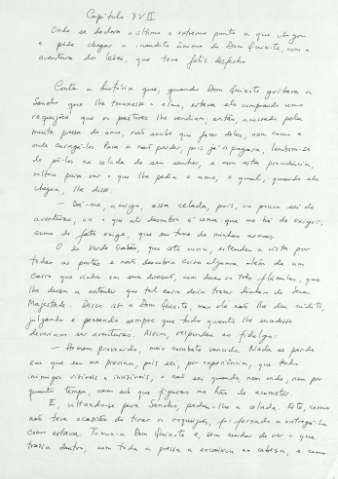 Capítulo XVII
Onde se declara o último e extremo ponto a que chegou
e pôde chegar o inaudito ânimo de Dom Quixote, com a
aventura dos leões, que teve feliz desfecho
Conta a história que, quando Dom Quixote gritava a
Sancho que lhe trouxesse o elmo, estava ele comprando uns
requeijões que os pastores lhe vendiam, então, acossado pela
muita pressa do amo, não soube que fazer deles, nem como e
onde carregá-los. Para não perder, pois já os pagara, lembrou-se
de pô-los na celada do seu senhor, e com esta providência,
voltou para ver o que lhe pedia o amo, o qual, quando ele
chegou, lhe disse:
— Dá-me, amigo, essa celada, pois, ou pouco sei de
aventuras, ou o que ali descubro é coisa que me há de exigir,
como de fato exige, que eu tome de minhas armas.
O do Verde Gabão, que isto ouviu, estendeu a vista por
todas as partes e não descobriu coisa alguma além de um
carro que vinha em sua direção, com duas ou três flâmulas, que
lhe deram a entender que tal carro devia trazer dinheiro de Sua
Majestade. Disse isto a Dom Quixote, mas ele não lhe deu crédito,
julgando e pensando sempre que tudo quanto lhe sucedesse
deveriam ser aventuras. Assim, respondeu ao fidalgo:
— Homem prevenido, meio combate vencido. Nada se perde
em que eu me previna, pois sei, por experiência, que tenho
inimigos visíveis e invisíveis, e não sei quando, nem onde, nem por
quanto tempo, nem sob que figuras me hão de acometer.
E, voltando-se para Sancho, pediu-lhe a celada. Este, como
não teve ocasião de tirar os requeijões, foi forçado a entregá-la
como estava. Tomou-a Dom Quixote e, sem cuidar de ver o que
trazia dentro, com toda a pressa a encaixou na cabeça, e como